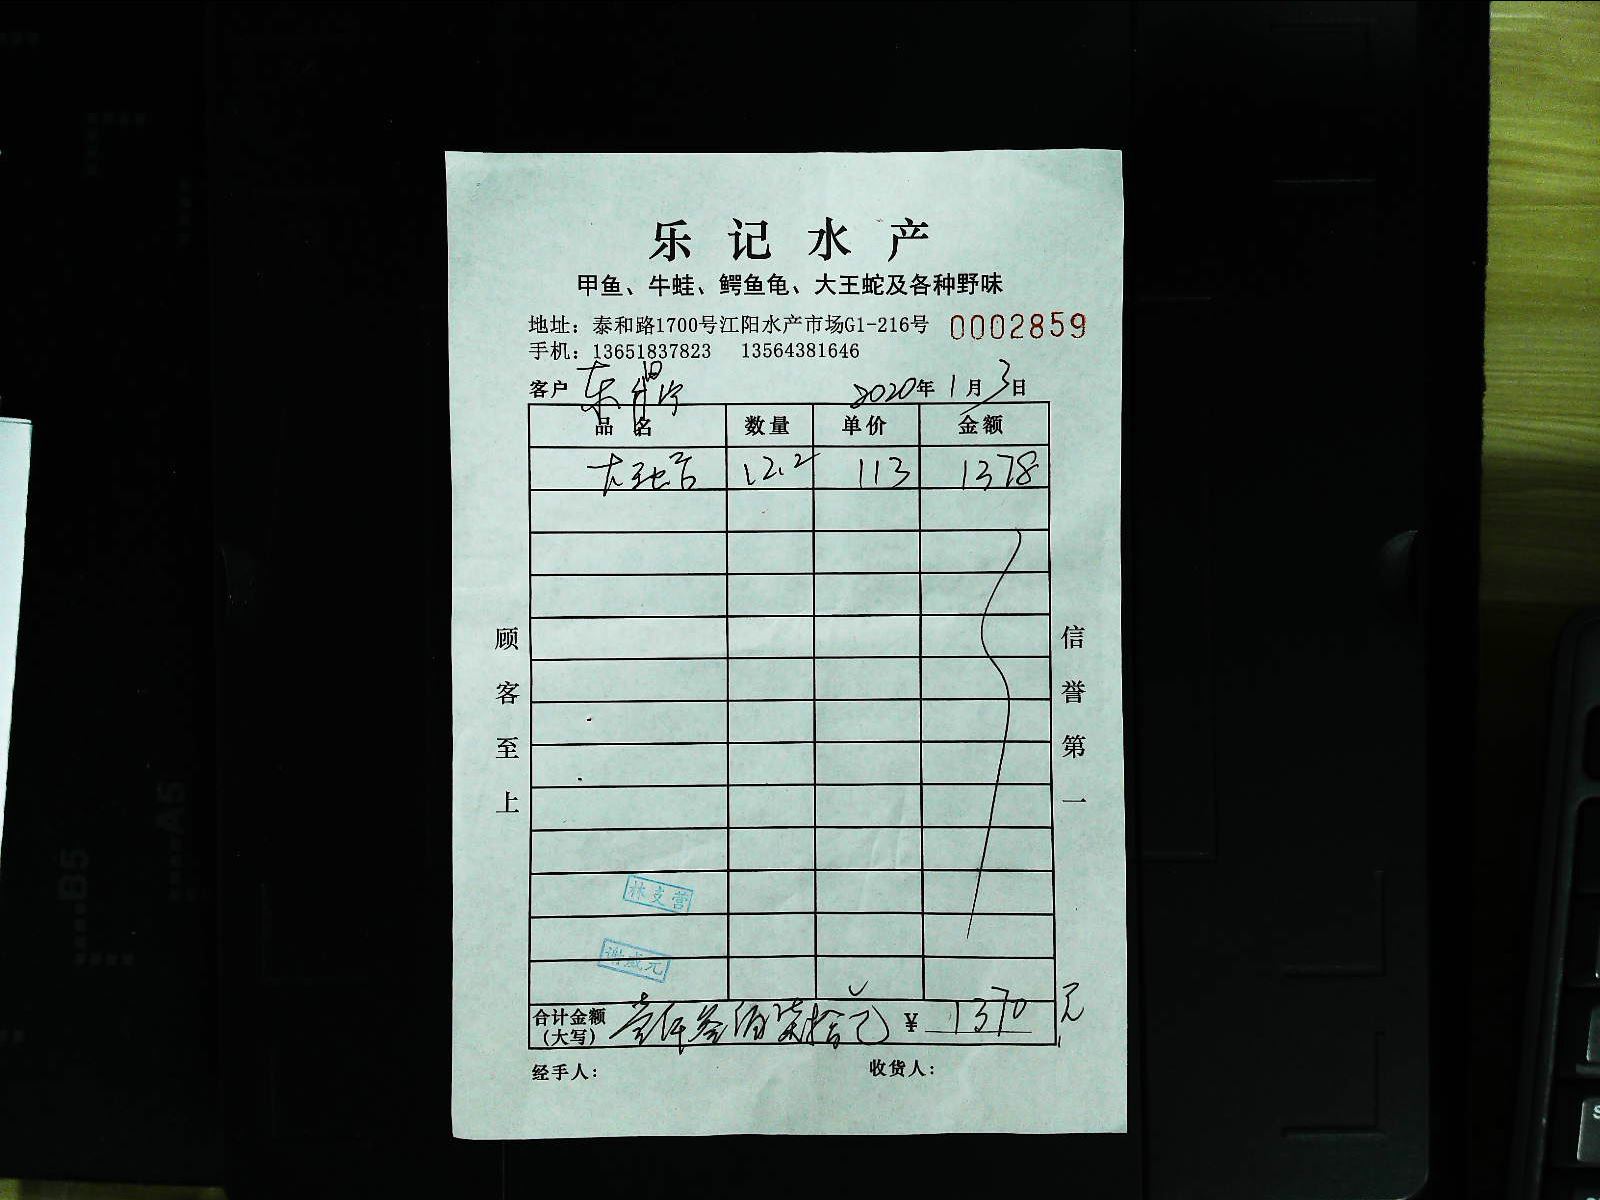 乐记水产
甲鱼、牛蛙、鳄鱼龟、大王蛇及各种野味
地址：泰和路1700号江阳水产市场G1-216号 0002859
手机：13651837823 13564381646
客户 东 2020年1月3日
品名 数量 单价 金额
大王蛇 12.2 113 1378
顾客至上
信誉第一
林支营
谢成元
合计金额（大写） 壹仟叁佰柒拾元 ¥ 1370 元
经手人： 收货人：